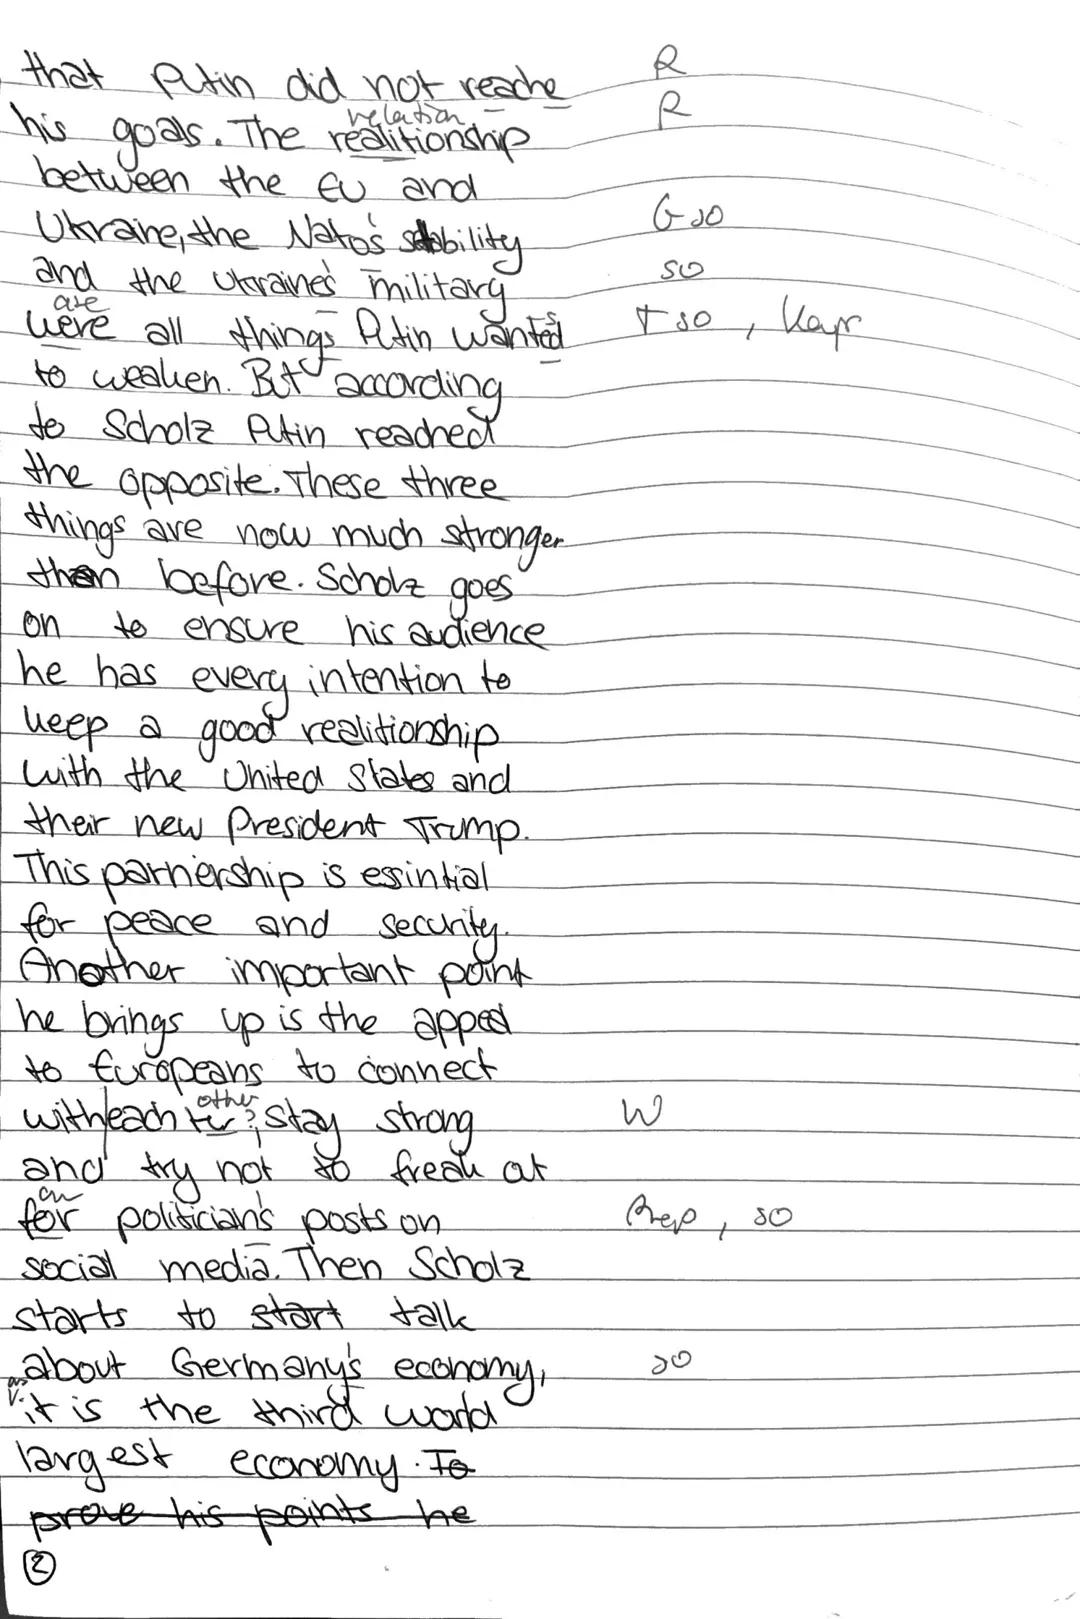 that Putin did not reache R
his goals. The realitionship relation R
between the EU and
Ukraine, the Nato's stability G so
and the Ukraine's military so
were are all things Putin wanted s T so,
to weaken. But according
to Scholz Putin reached
the opposite. These three
things are now much stronger
than before. Scholz goes
on to ensure his audience
he has every intention to
keep a good realitionship
with the United States and
their new President Trump.
This parnership is essintial
for peace and security.
Another important point
he brings up is the appeal
to Europeans to connect
with each other, stay strong W
and try not to freak at
for on politician's posts on Prep, so
social media. Then Scholz
starts to start talk
about Germany's economy, so
as it is the third world
largest economy. To
prove his points he
2